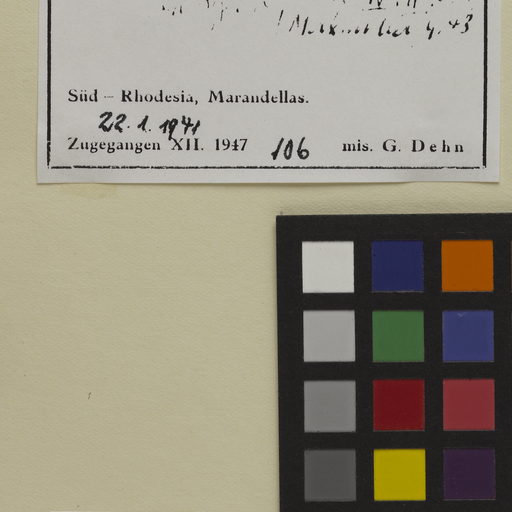 Süd – Rhodesia, Marandellas.
22. 1. 1941
Zugegangen XII. 1947 106 mis. G. Dehn